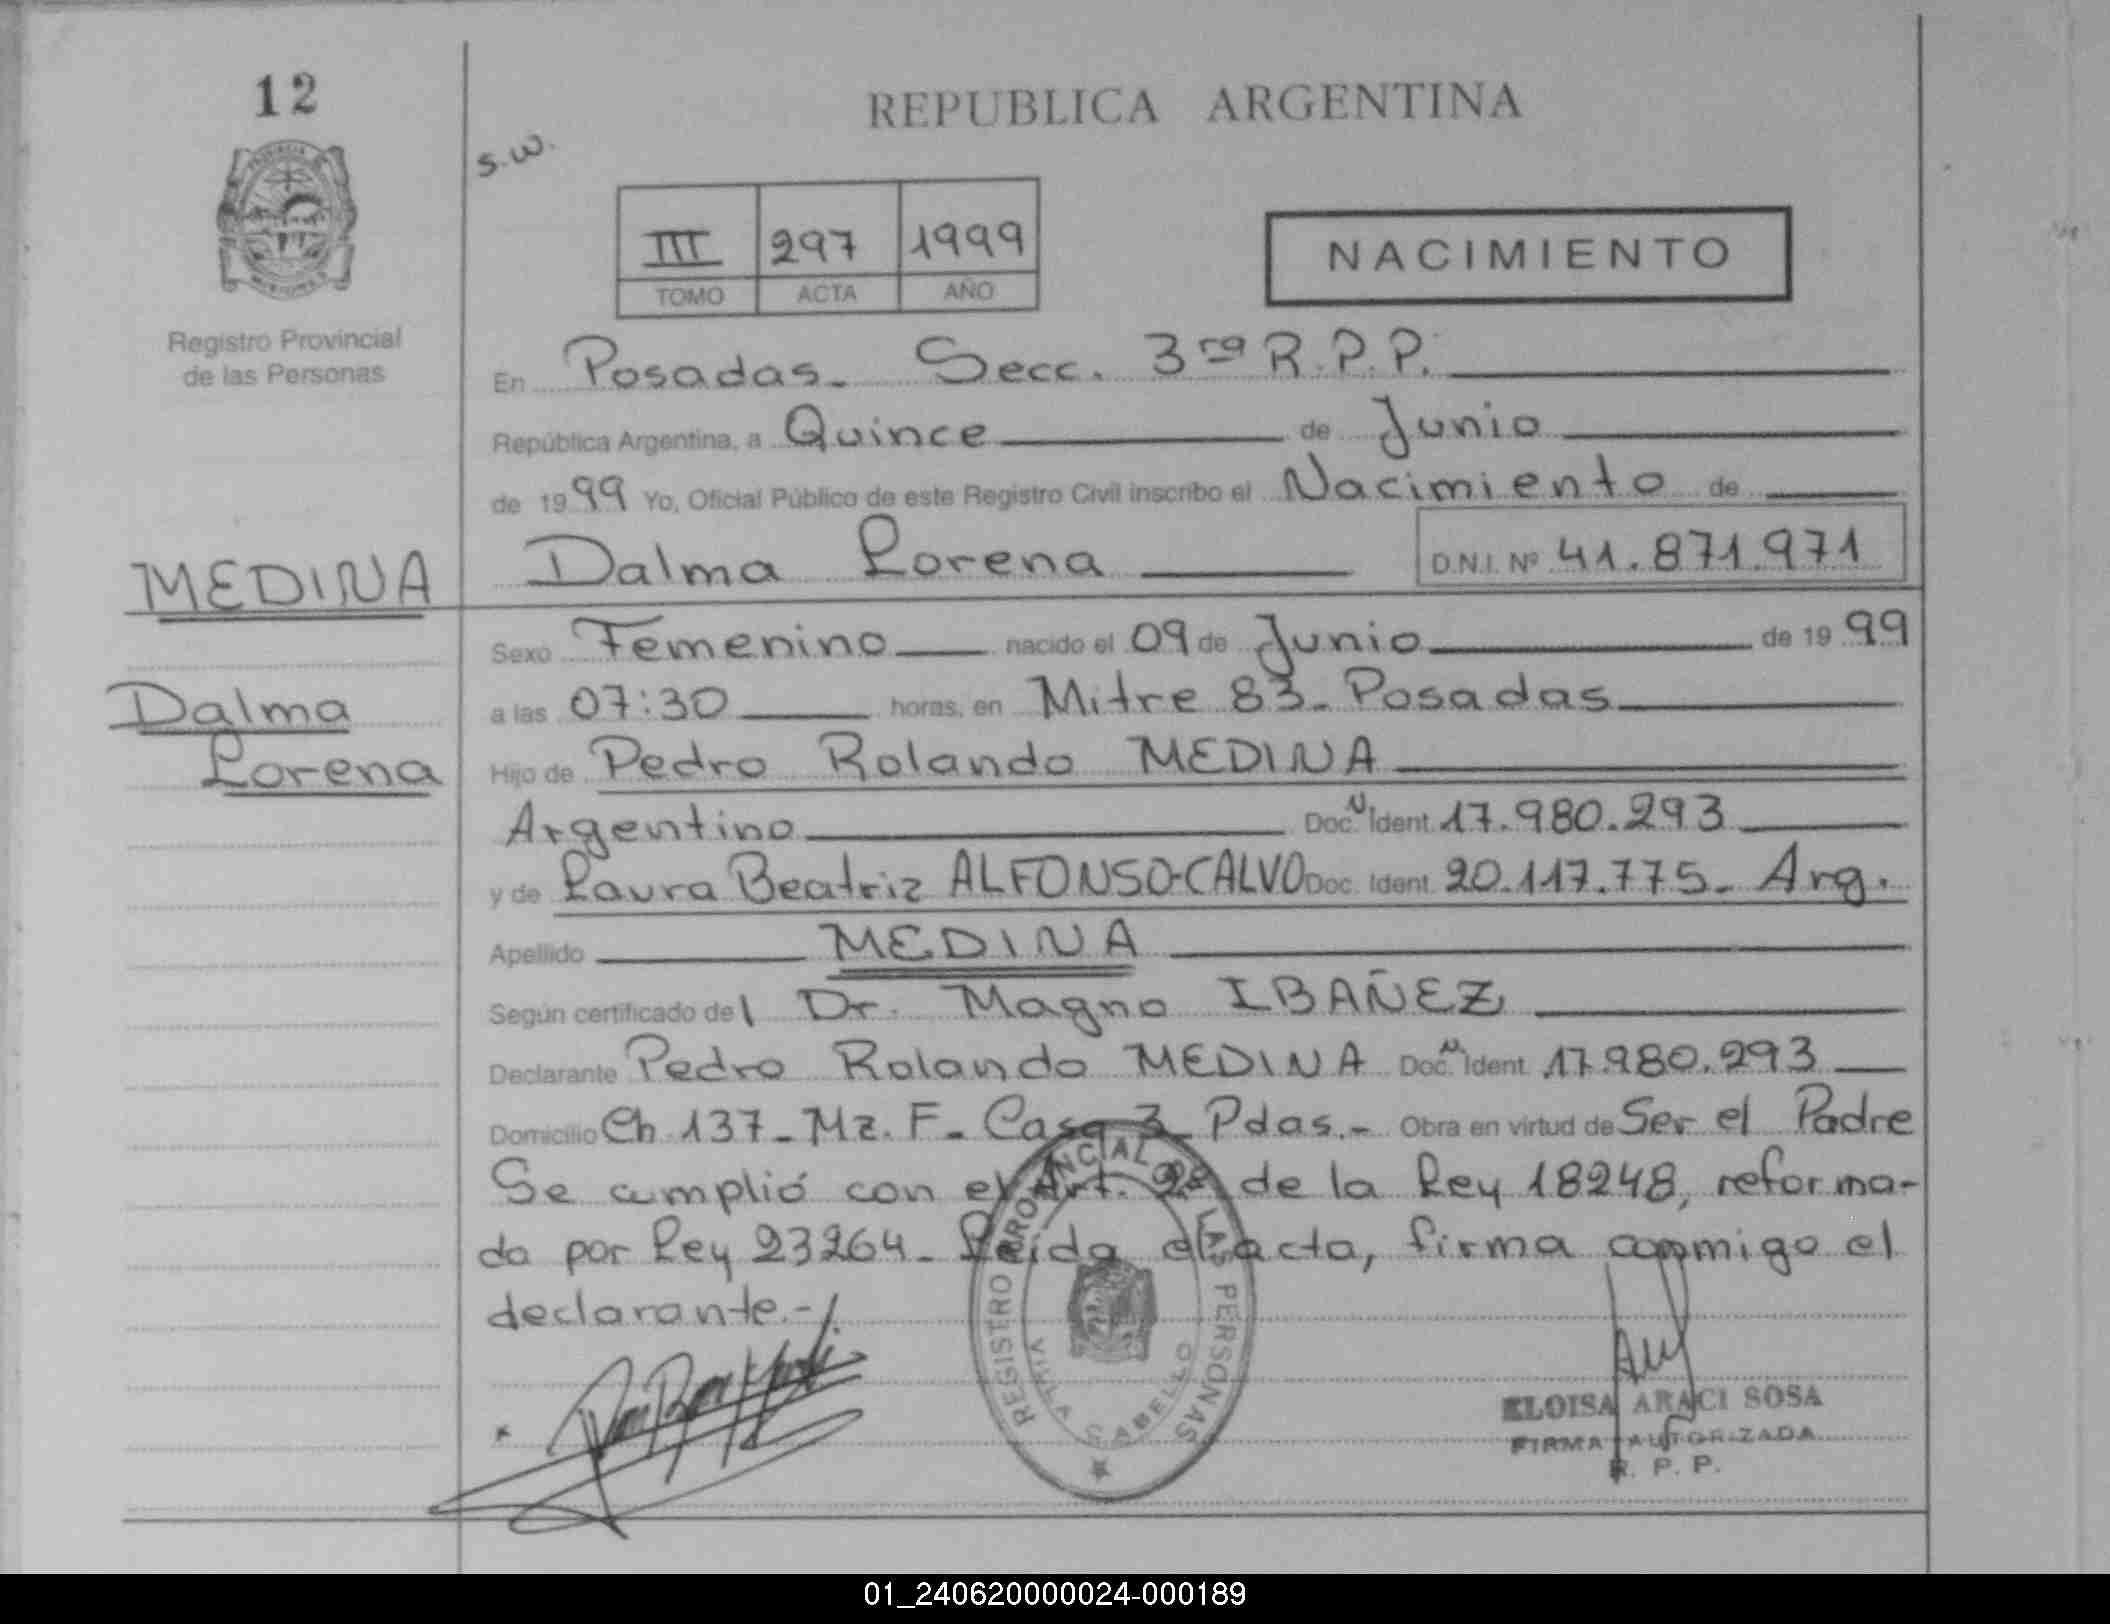 12
REPUBLICA ARGENTINA
s.w.
III 297 1999
TOMO ACTA AÑO
NACIMIENTO
Registro Provincial
de las Personas
En Posadas. Secc. 3ra R.P.P.
República Argentina, a Quince de Junio
de 1999 Yo, Oficial Público de este Registro Civil inscribo el Nacimiento de
Dalma Lorena D.N.I. Nº 41.871.971
MEDINA
Dalma
Lorena
Sexo Femenino nacido el 09 de Junio de 1999
a las 07:30 horas, en Mitre 83. Posadas
Hijo de Pedro Rolando MEDINA
Argentino Doc. N Ident. 17.980.293
y de Laura Beatriz ALFONSO-CALVO Doc. Ident. 20.117.775. Arg.
Apellido MEDINA
Según certificado del Dr. Magno IBAÑEZ
Declarante Pedro Rolando MEDINA Doc. N Ident. 17.980.293
Domicilio Ch 137 - Mz. F - Casa 3 Pdas.- Obra en virtud de Ser el Padre
Se cumplió con el Art. de la Ley 18248, reforma-
da por Ley 23264. Leida el acta, firma conmigo el
declarante.-
REGISTRO PROVINCIAL DE LAS PERSONAS
ELOISA ARACI SOSA
FIRMA AUTORIZADA
R. P. P.
01_240620000024-000189